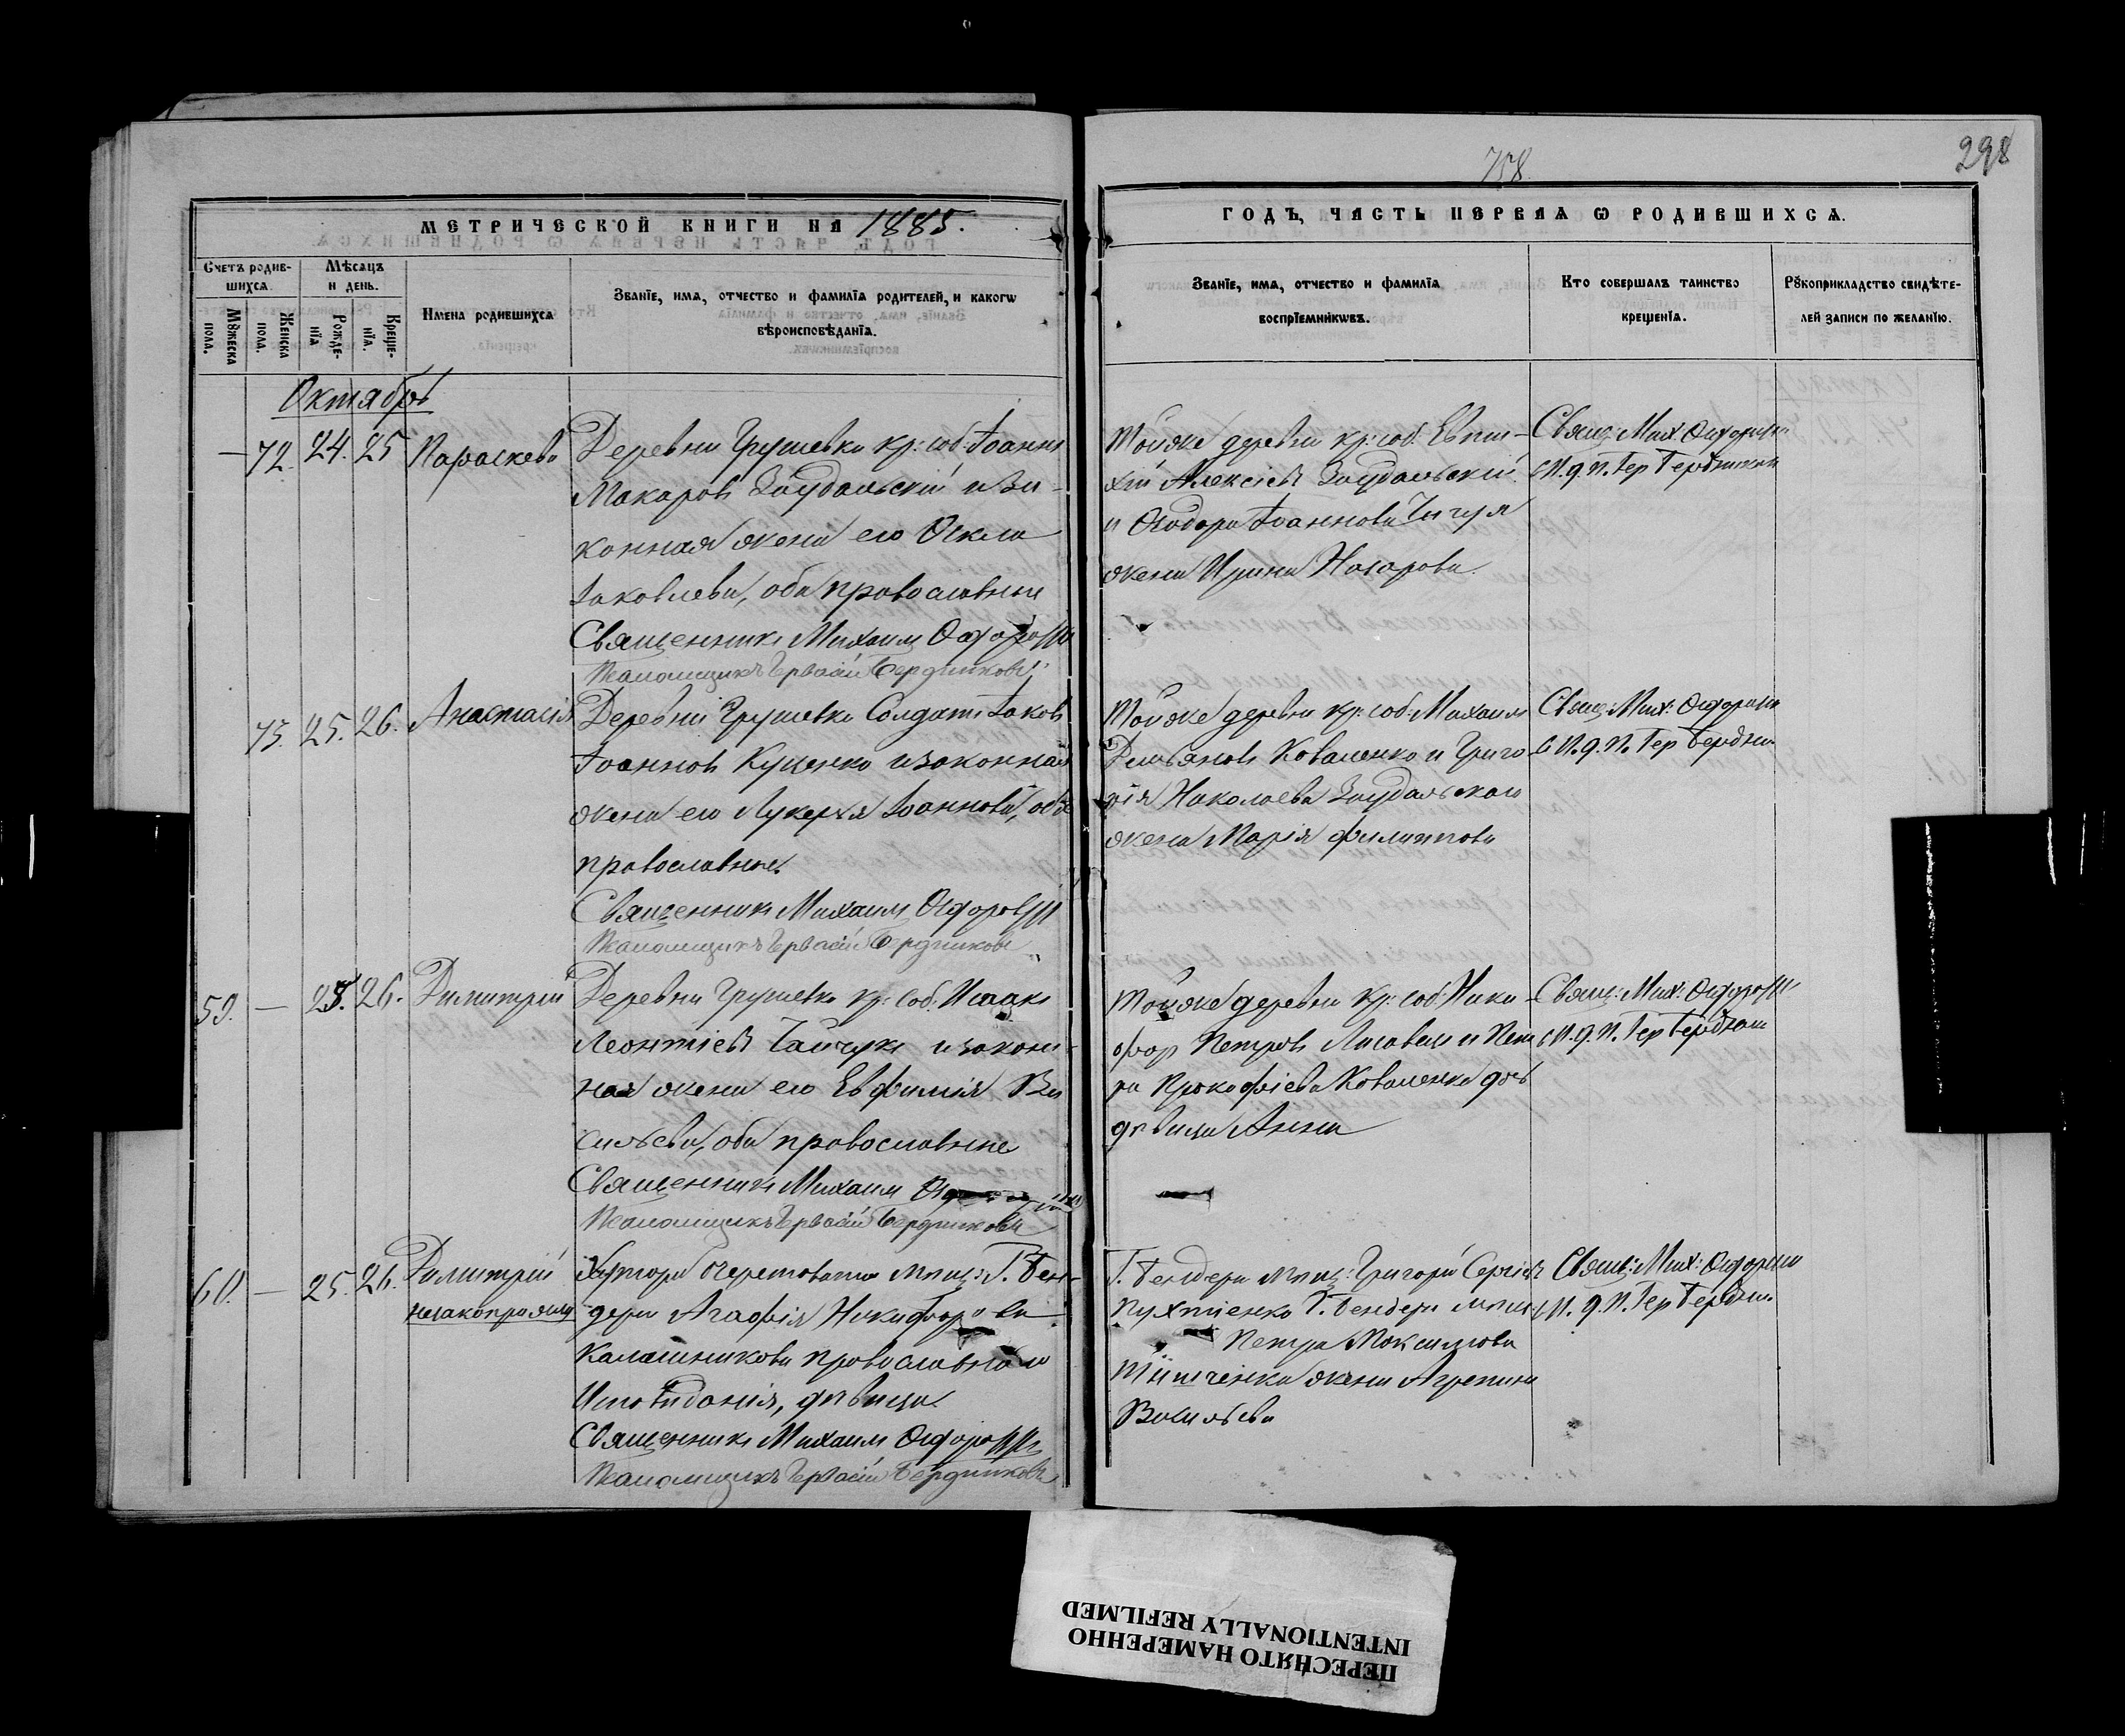 758
298
МЕТРИЧЕСКОЙ КНИГИ НА 1885.
ГОДЪ, ЧАСТЬ ПЕРВАЯ Ѡ РОДИВШИХСѦ.
Счетъ родив-
шихсѧ.
Мѣсѧцъ
и день.
Мꙋжеска
пола.
Женска
пола.
Рожде-
нїѧ
Креще-
нїѧ.
Имена родившихсѧ
Званїе, имѧ, отчество и фамилїѧ родителей, и какогѡ
вѣроисповѣданїѧ.
Званїе, имѧ, отчество и фамилїѧ
воспрїемникѡвъ.
Кто совершалъ таинство
крещенїѧ.
Рꙋкоприкладство свидѣте-
лей записи по желанїю.
Октябрь
— 72. 24. 25 Параскева
Деревни Грушевки кр: соб: Іоаннъ
Макаровъ Заудальскій и за-
конная жена его Ѳекла
Іаковлева, оба православные
Священникъ Михаилъ
Псаломщикъ Гервасій Бердниковъ
Тойже деревни кр: соб: Евти-
хій Алексіевъ Заудальскій
и Ѳеодора Іоаннова
жена Ирина Назарова
Свящ: Мих:
73. 25. 26. Анастасія
Деревни Грушевки Солдатъ Іаковъ
Іоанновъ Куценко и законная
жена его Лукерья Іоаннова, оба
православные
Священникъ Михаилъ
Псаломщикъ Гервасій Бердниковъ
Тойже деревни кр: соб: Михаилъ
Демьяновъ Коваленко и Григо
рія Николаева Заудальскаго
жена Марія Филиппова
Свящ: Мих:
59. — 25. 26. Димитрій
Деревни Грушевки кр: соб: Исаакъ
Леонтіевъ и закон-
ная жена его Евфимія Ва
сильева, оба православные
Священникъ Михаилъ
Псаломщикъ Гервасій Бердниковъ
Тойже деревни кр: соб: Ники-
форъ Петровъ и Пет
ра Прокофіева Коваленка дочь
дѣвица Анна
Свящ: Мих:
60. — 25. 26. Димитрій
незаконрожд
Хутора мѣщ: Г. Бен-
деръ Агафія Никифорова
Калашникова православнаго
Исповѣданія, дѣвица
Священникъ Михаилъ
Псаломщикъ Гервасій Бердниковъ
Г. Бендеръ мѣщ: Григорій Сергіевъ
Г. Бендеръ мѣщ:
Петра Максимова
жена Агрипина
Васильева
Свящ: Мих:
ПЕРЕСНЯТО НАМЕРЕННО
INTENTIONALLY REFILMED